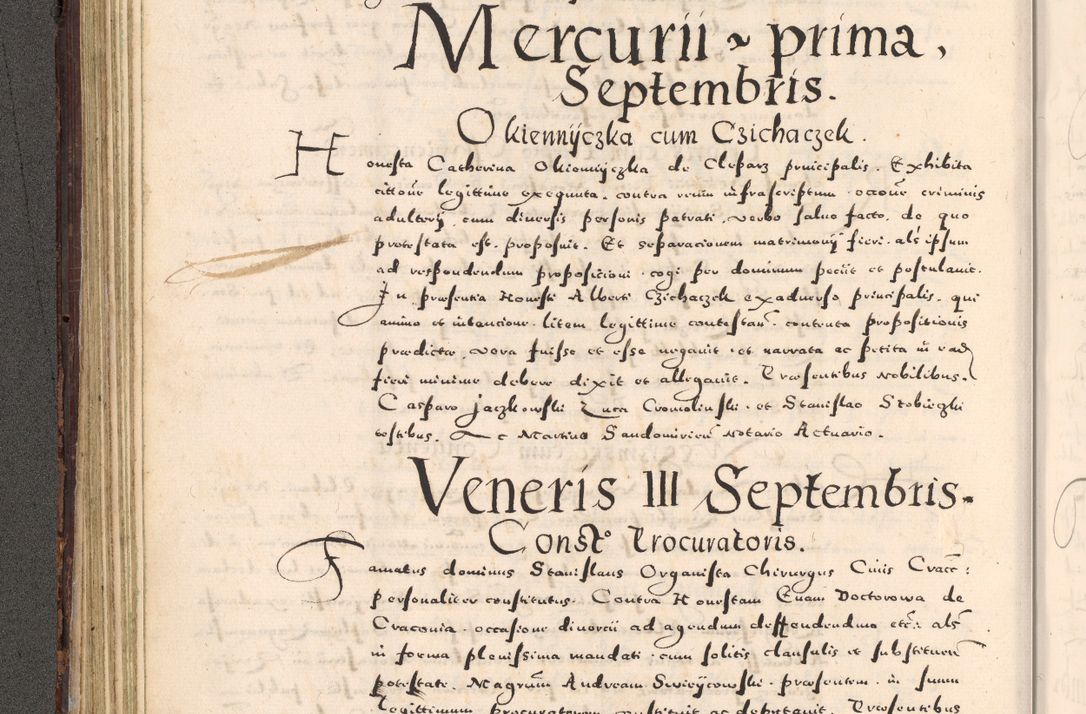 Mercurii ~ prima,
Septembris.
Okiennyczka cum Czichaczek.
Honesta Catherina Okiennyczka de Cleparz principalis. Exhibita
citione legittime exequuta. contra reum infrascriptum. occione criminis
adulterij cum diuersis personis patrati. verbo saluo facto. de quo
protestata est. proposuit. Et separacionem matrimonij fieri. als ipsum
ad respondendum proposicioni. cogi per dominum peciit et postulauit.
In praesentia Honesti Alberti Czichaczek ex aduerso principalis. qui
animo et intencione. litem legittime contestan. contenta propositionis
praedictae, vera fuisse et esse negauit. et narrata ac petita in ead
fieri minime debere dixit et allegauit. Praesentibus nobilibus.
Casparo Jaczkowski Luca Cromolinski. et Stanislao Stobieczki
testibus. Ac Martino Sandomirien Notario Actuario.
Veneris III Septembris.
Const° Procuratoris.
Famatus dominus Stanislaus Organista Chirurgus Ciuis Cracc:
personaliter constitutus. Contra Honestam Euam Doctorowa de
Craconia occasione diuorcii ad agendum deffendendum etc: als
in forma plenissima mandati. cum solitis clausulis et substituen
potestate. Magrum Andream praesentem. in suum
Legittimum procuratorem constituit ac deputauit. Praesentibus